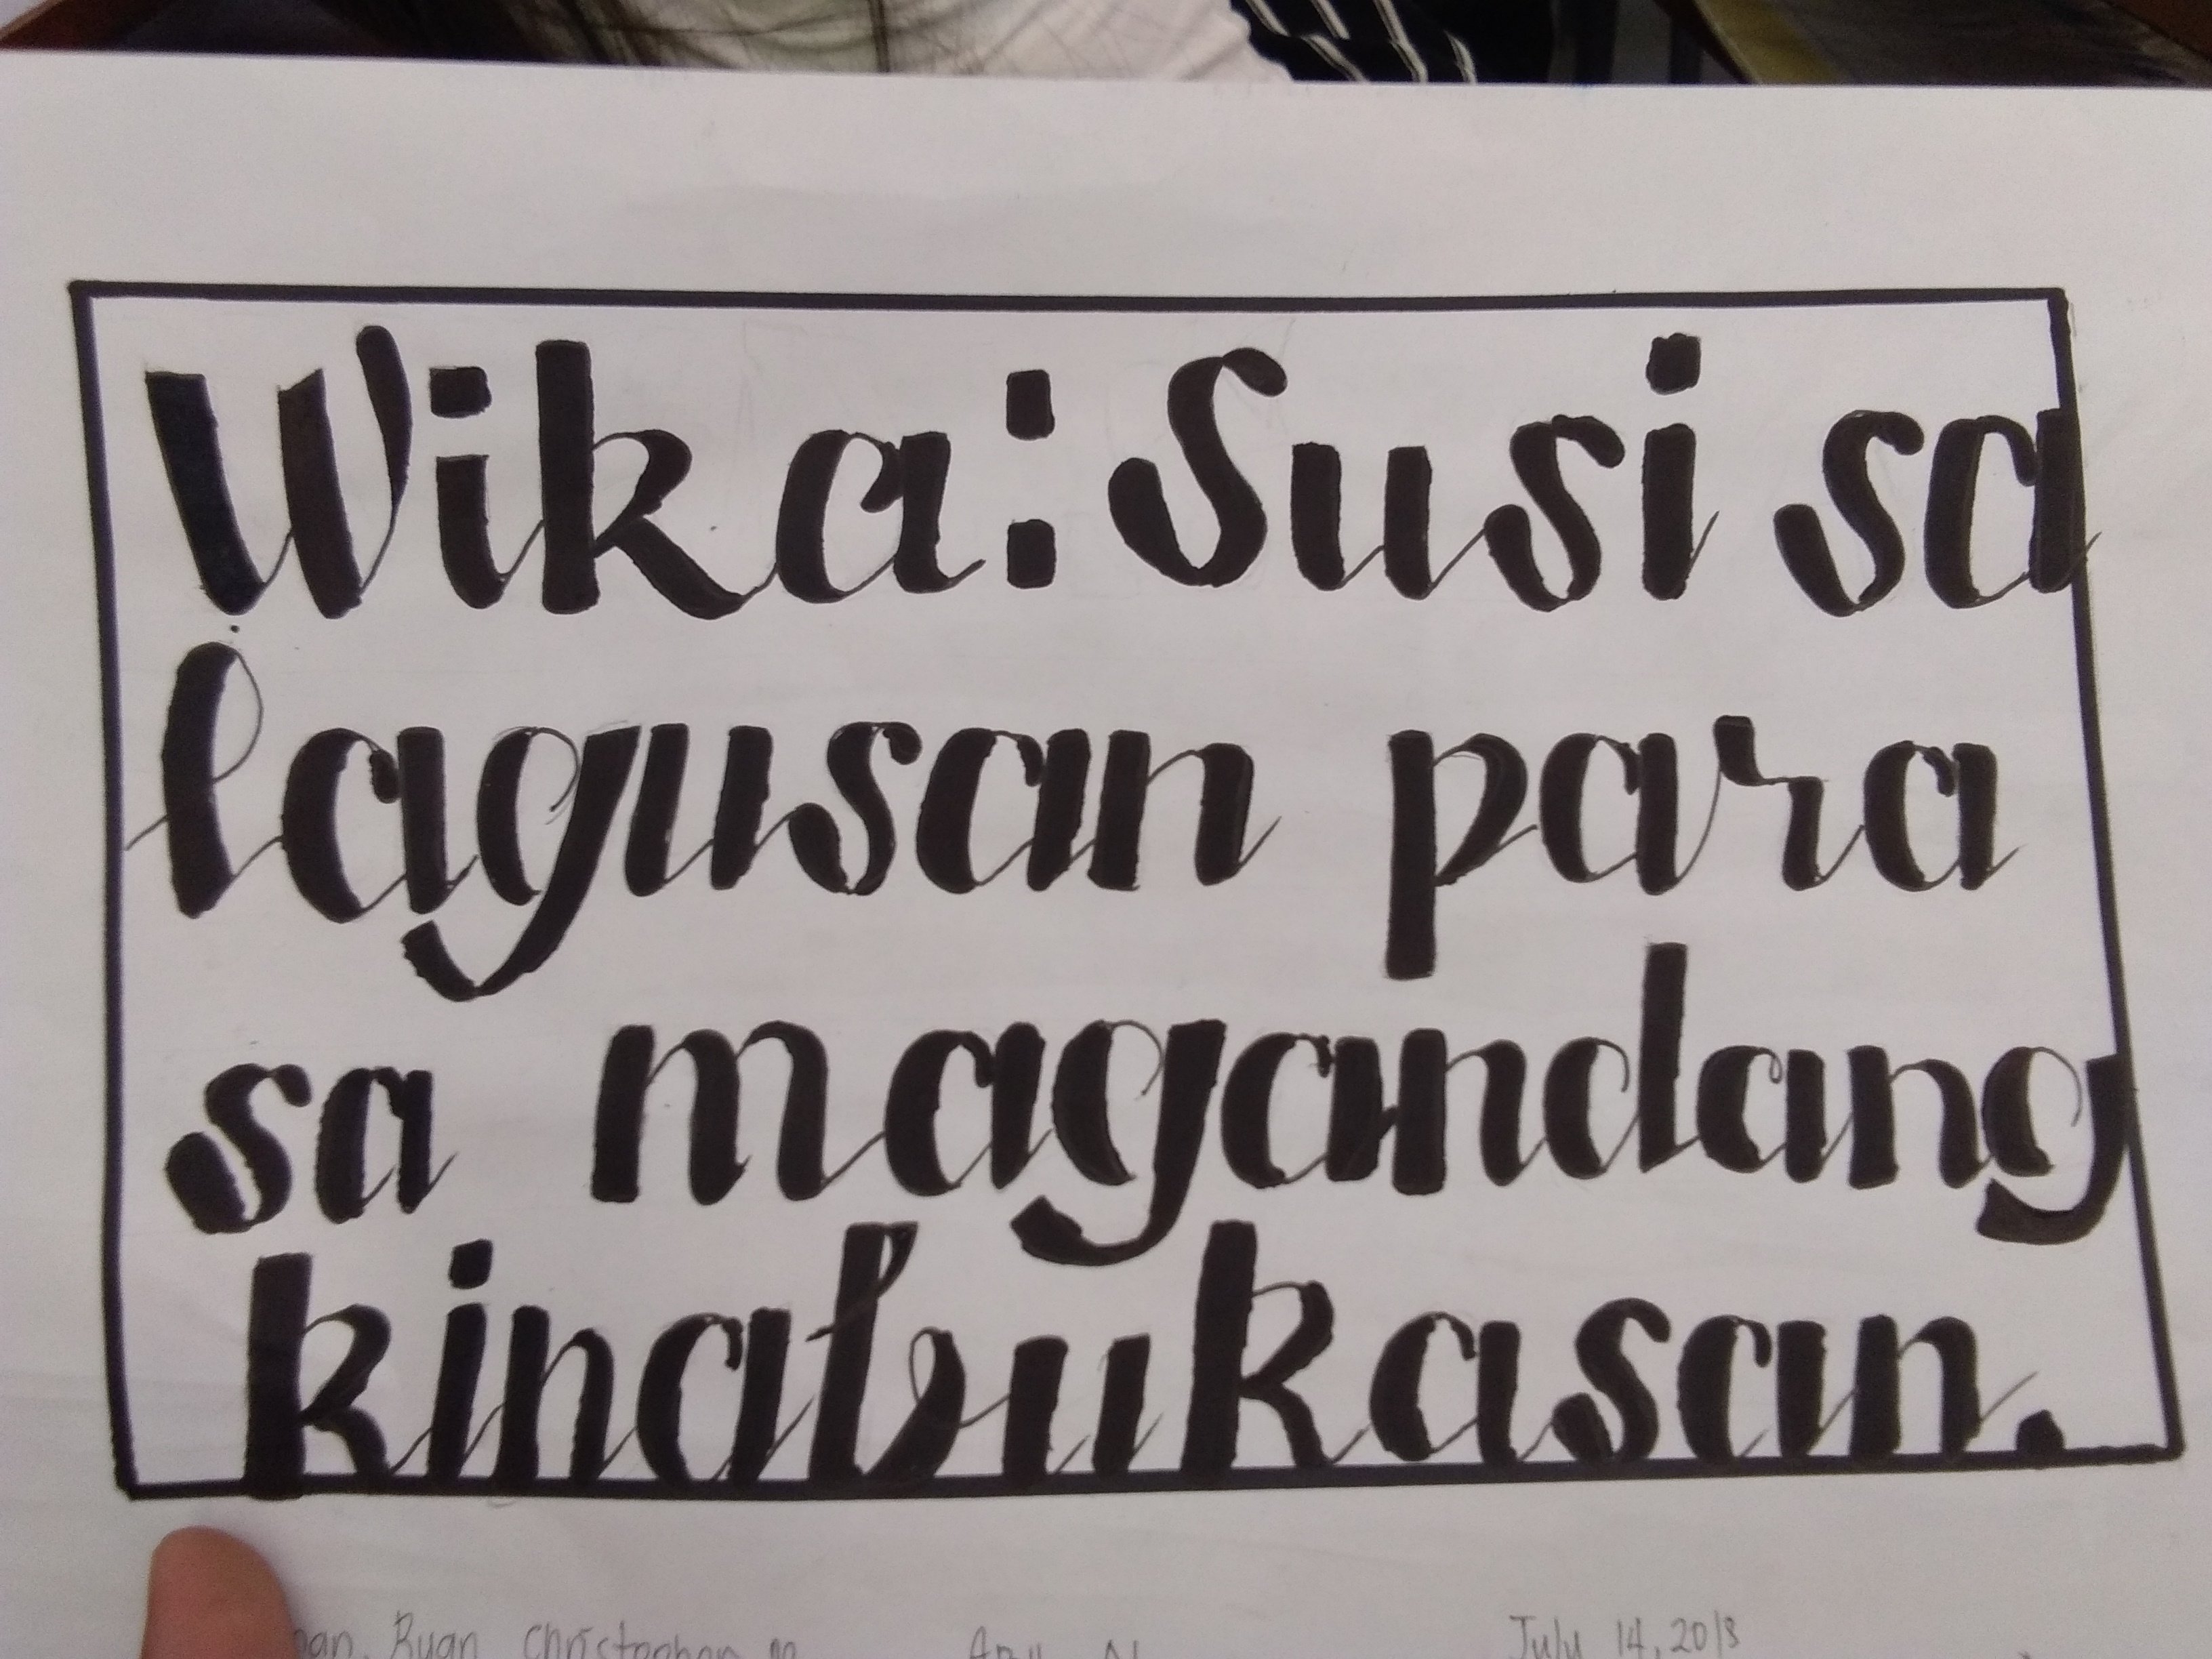 Wika: Susi sa
lagusan para
sa magandang
kinabukasan.
Ryan Christopher M July 14, 2018